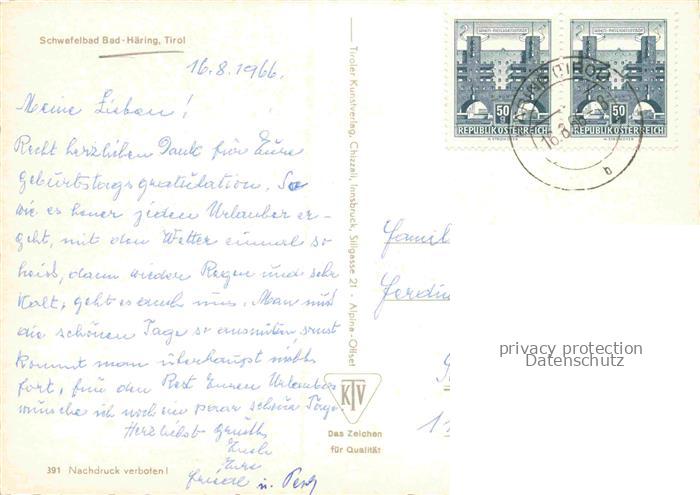 Schwefelbad Bad-Häring, Tirol
16.8.1966.
Meine Lieben!
Recht herzlichen Dank für Eure
Geburtstagsgratulation. So
wie es heuer jeden Urlauber er-
geht, mit dem Wetter einmal so
heiß, dann wieder Regen und sehr
kalt, geht es auch uns. Man muß
die schönen Tage so ausnützen, sonst
kommt man überhaupt nicht
fort, für den Rest Eures Urlaubes
wünsche ich noch ein paar schöne Tage.
Herzlichst grüßt
Euch
Eure
u.
391 Nachdruck verboten!
Tiroler Kunstverlag, Chizzali, Innsbruck, Sillgasse 21 - Alpina-Offset
KTV
Das Zeichen
für Qualität
50 g
REPUBLIK ÖSTERREICH
50 g
REPUBLIK ÖSTERREICH
16.8.66
b
Famil
Ferdin
privacy protection
Datenschutz